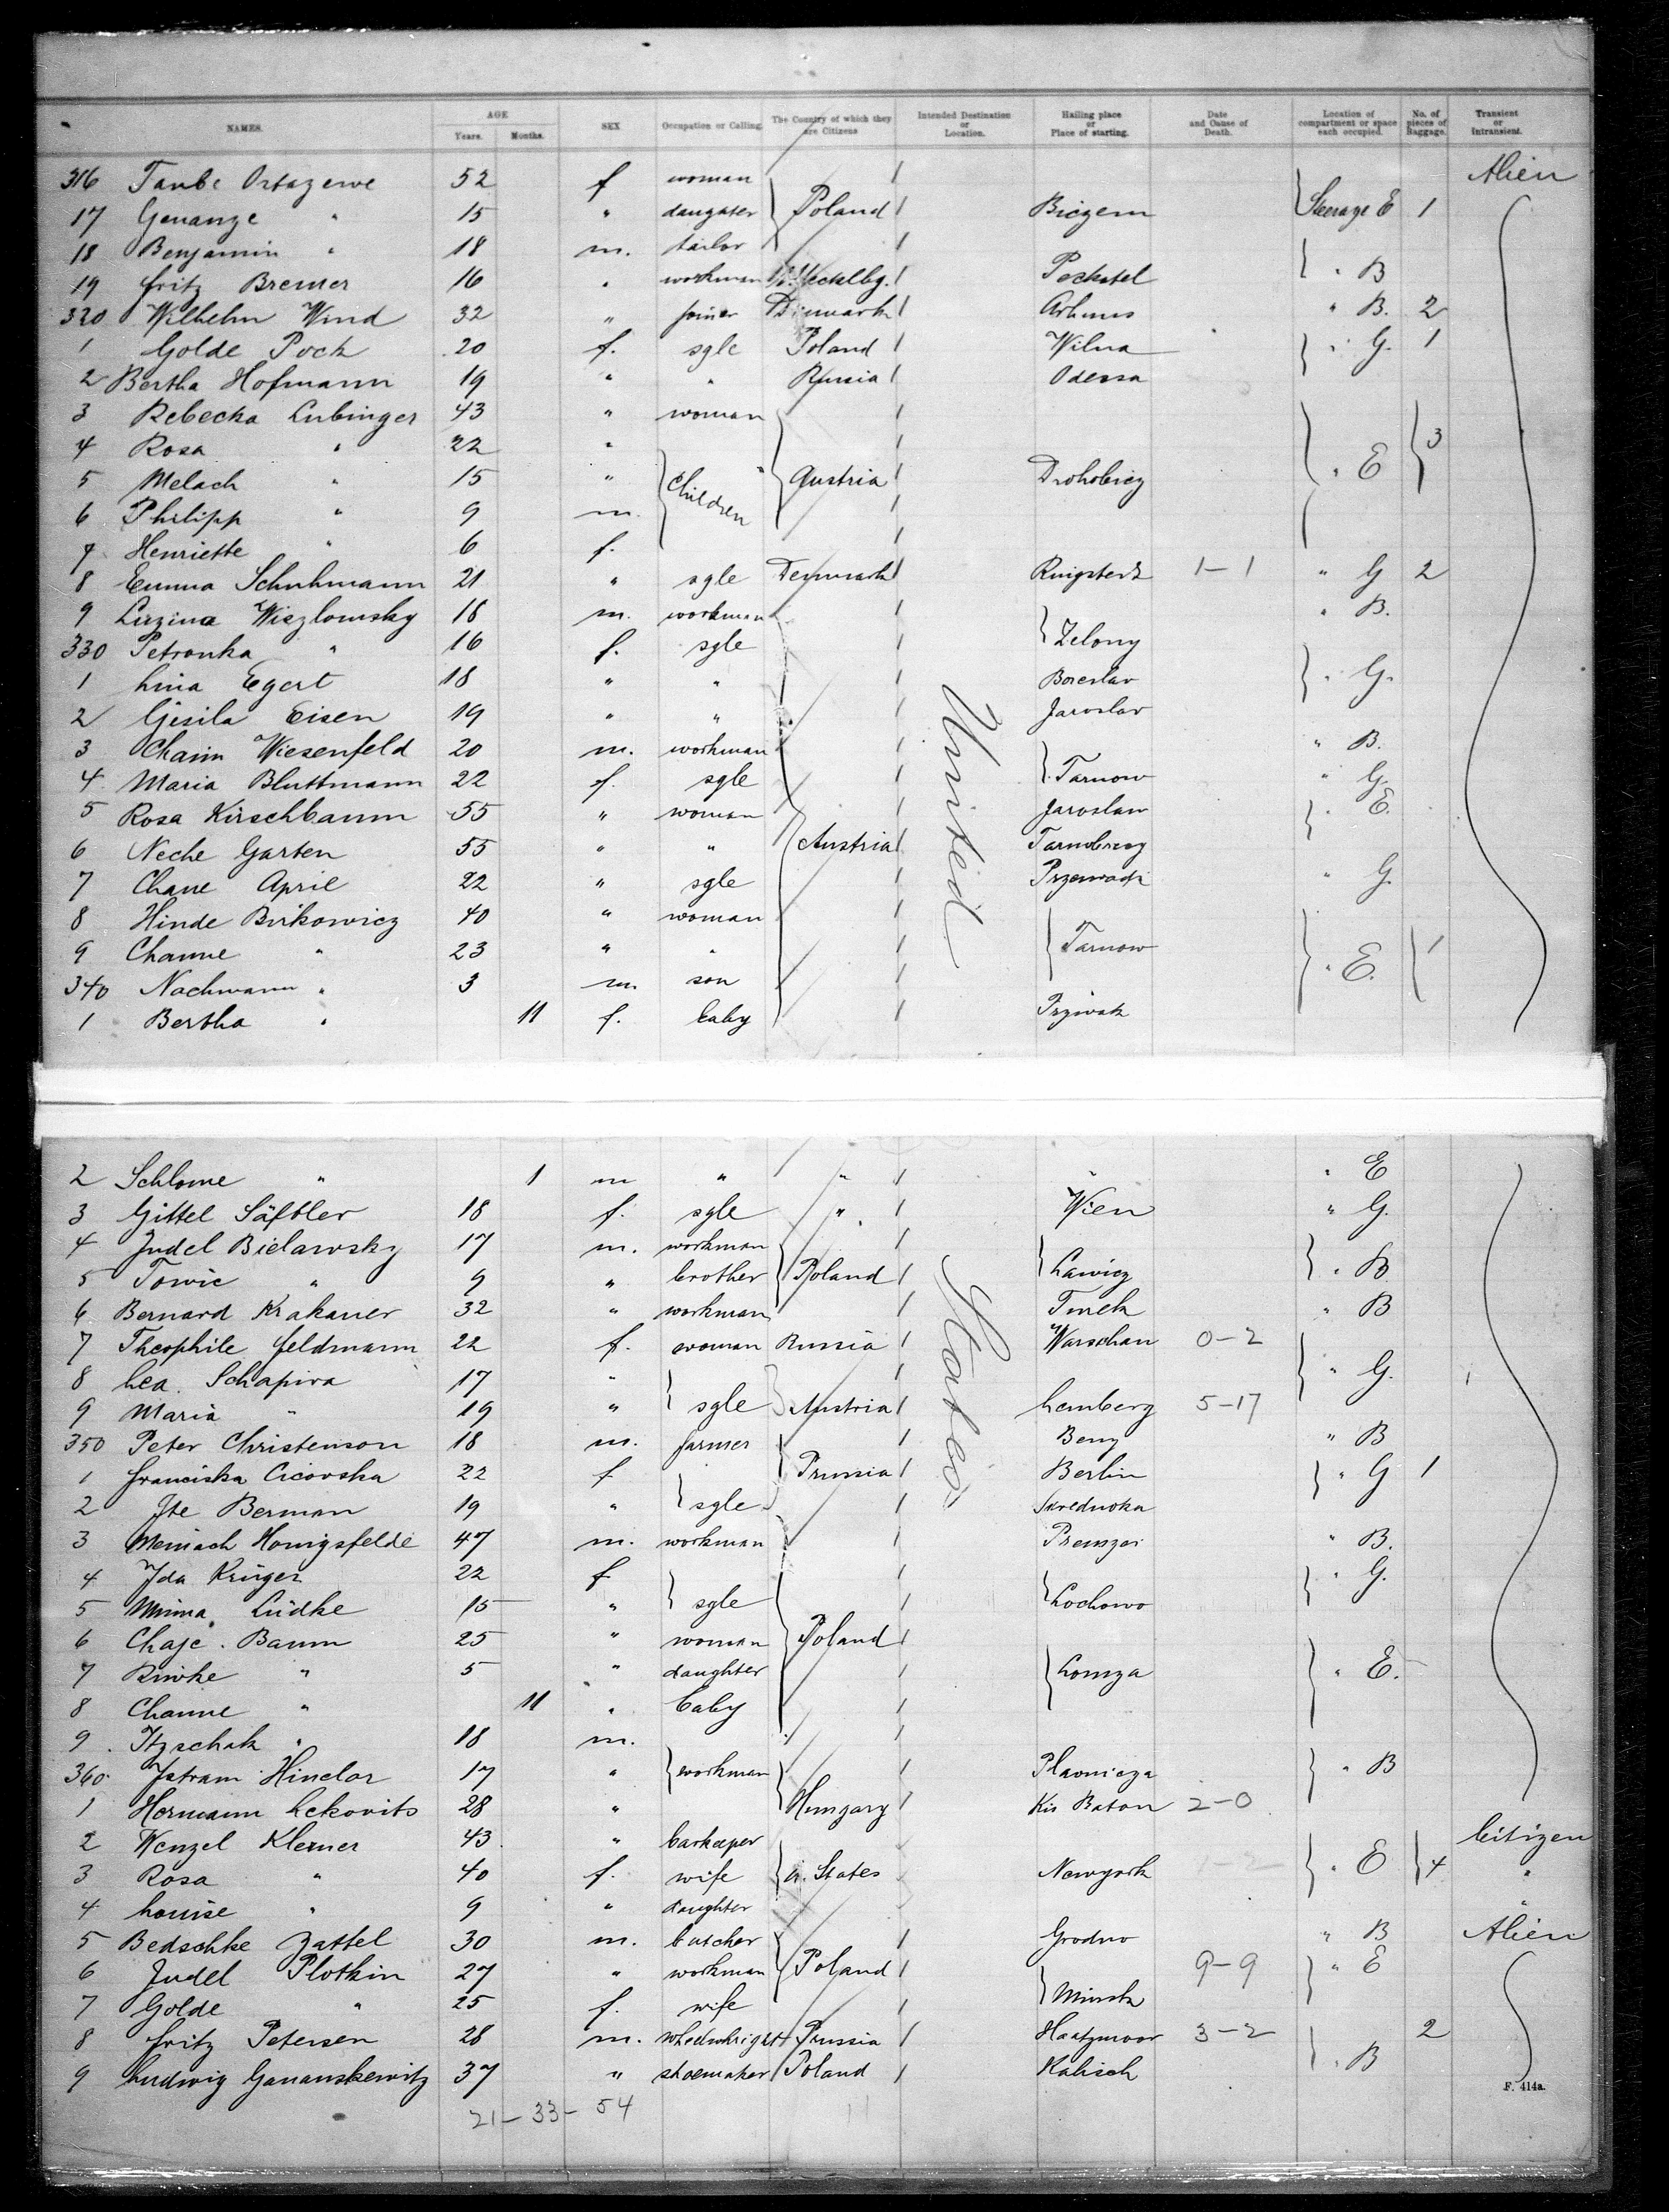 NAMES. AGE Years. Months. SEX Occupation or Calling. The Country of which they are Citizens Intended Destination or Location. Hailing place or Place of starting. Date and Cause of Death. Location of compartment or space each occupied. No. of pieces of Baggage. Transient or Intransient.
316 Taube 52 f woman Alien
17 " 15 " daugater Poland Steerage E 1
18 Benjamin " 18 m. tailor
19 Fritz Bremer 16 " workman " B
320 Wilhelm Wind 32 " joiner Denmark Arhuus " B. 2
1 Golde Pock 20 f. sgle Poland Wilna " G. 1
2 Bertha Hofmann 19 " " Russia Odessa
3 Rebecka Lubinger 43 " woman
4 Rosa " 22 " 3
5 Melach " 15 " children " Austria Drohobicz " E
6 Philipp " 9 m.
7 Henriette " 6 f.
8 Emma Schuhmann 21 " sgle Denmark Ringstedt 1-1 " G 2
9 Wiezlomsky 18 m. workman " B.
330 Petronka " 16 f. sgle Zelony
1 Lina Egert 18 " " Boreslav " G.
2 Gisila Eisen 19 " " Jaroslav
3 Chaim Wiesenfeld 20 m. workman " B.
4 Maria Bluttmann 22 f. sgle Tarnow " G
5 Rosa Kirschbaum 55 " woman Jaroslaw " E.
6 Neche Garten 55 " " Austria Tarnobrzeg
7 Chane April 22 " sgle " G.
8 Hinde Birkowicz 40 " woman
9 Channe " 23 " " Tarnow " E. 1
340 Nachmann " 3 m. son
1 Bertha " 11 f. baby
United States
2 Schlome " 1 m " " " " E
3 Gittel 18 f. sgle " Wien " G.
4 Judel Bielawsky 17 m. workman
5 Towie " 9 " brother Poland Lawicz " B
6 Bernard Krakauer 32 " workman Turek " B
7 Theophile Feldmann 22 f. woman Russia Warschau 0-2
8 Lea Schapira 17 " " G.
9 Maria " 19 " sgle Austria Lemberg 5-17
350 Peter Christenson 18 m. farmer " B
1 Franciska Cicovska 22 f Prussia Berlin " G 1
2 Ite Berman 19 " sgle
3 Honigsfelde 47 m. workman " B.
4 Ida Krüger 22 f " G.
5 Minna Lüdke 15 " sgle Lochowo
6 Chaje Baum 25 " woman Poland
7 Riwke " 5 " daughter Lomza " E.
8 Channe " 11 " baby
9 Itzschak " 18 m.
360 Hinclar 17 " workman " B
1 Hermann Lekovits 28 " Hungary Kis Baton 2-0
2 Wenzel Klemer 43 " barkeeper Citizen
3 Rosa " 40 f. wife U. States Newyork " E 4 "
4 Louise " 9 " daughter "
5 Bedschke Zattel 30 m. butcher Grodno " B Alien
6 Judel Plotkin 27 " workman Poland 9-9 " E
7 Golde " 25 f. wife Minsk
8 Fritz Petersen 28 m. wheelwright Prussia 3-2 2
9 Ludwig Gananskewitz 37 " shoemaker Poland Kalisch " B
F. 414a.
21-33-54